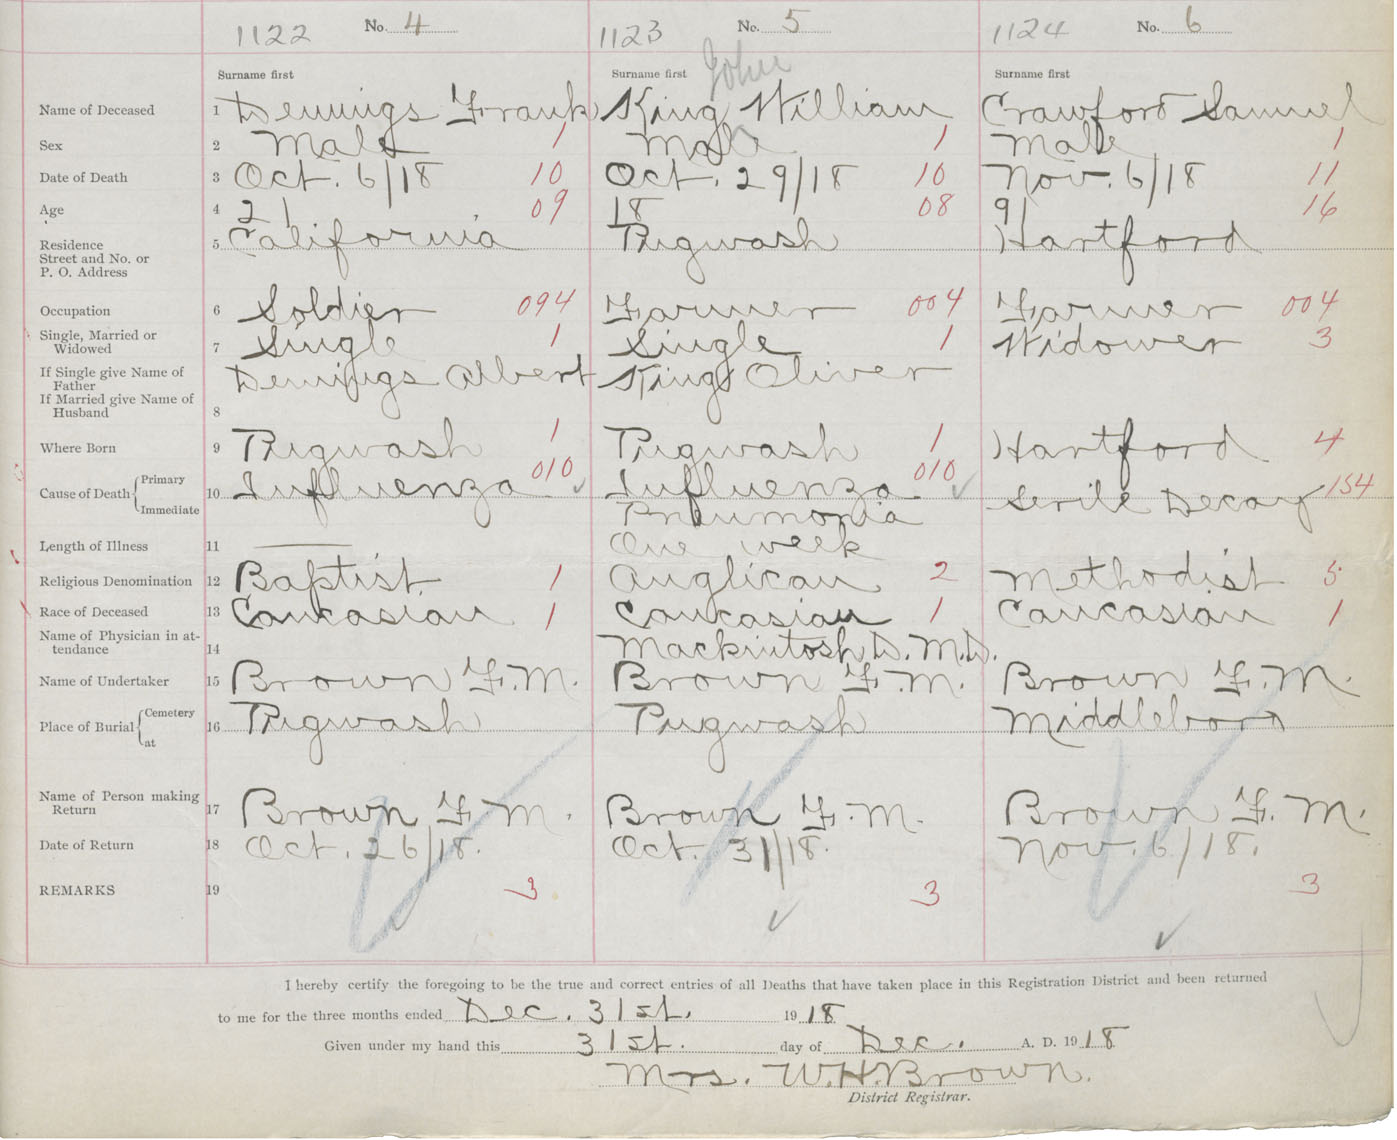 1122 No. 4 1123 No. 5 1124 No. 6
Surname first Surname first John Surname first
Name of Deceased 1 Demings Frank King William Crawford Samuel
Sex 2 Male 1 Male 1 Male 1
Date of Death 3 Oct. 6/18 10 Oct. 29/18 10 Nov. 6/18 11
Age 4 21 09 18 08 91 16
Residence
Street and No. or
P. O. Address 5 California Pugwash Hartford
Occupation 6 Soldier 094 Farmer 004 Farmer 004
Single, Married or
Widowed 7 Single 1 Single 1 Widower 3
If Single give Name of
Father Demings Albert King Oliver
If Married give Name of
Husband 8
Where Born 9 Pugwash 1 Pugwash 1 Hartford 4
Cause of Death Primary
Immediate 10 Influenza 010 Influenza 010 Senile Decay 154
Pneumonia
Length of Illness 11 — One week
Religious Denomination 12 Baptist 1 Anglican 2 Methodist 5
Race of Deceased 13 Caucasian 1 Caucasian 1 Caucasian 1
Name of Physician in at-
tendance 14 Mackintosh D. M.D.
Name of Undertaker 15 Brown F. M. Brown F. M. Brown F. M.
Place of Burial Cemetery
at 16 Pugwash Pugwash Middleboro
Name of Person making
Return 17 Brown F. M. Brown F. M. Brown F. M.
Date of Return 18 Oct. 26/18. Oct. 31/18. Nov. 6/18.
REMARKS 19 3 3 3
I hereby certify the foregoing to be the true and correct entries of all Deaths that have taken place in this Registration District and been returned
to me for the three months ended Dec. 31st. 1918
Given under my hand this 31st. day of Dec. A. D. 1918
Mrs. W.H. Brown.
District Registrar.